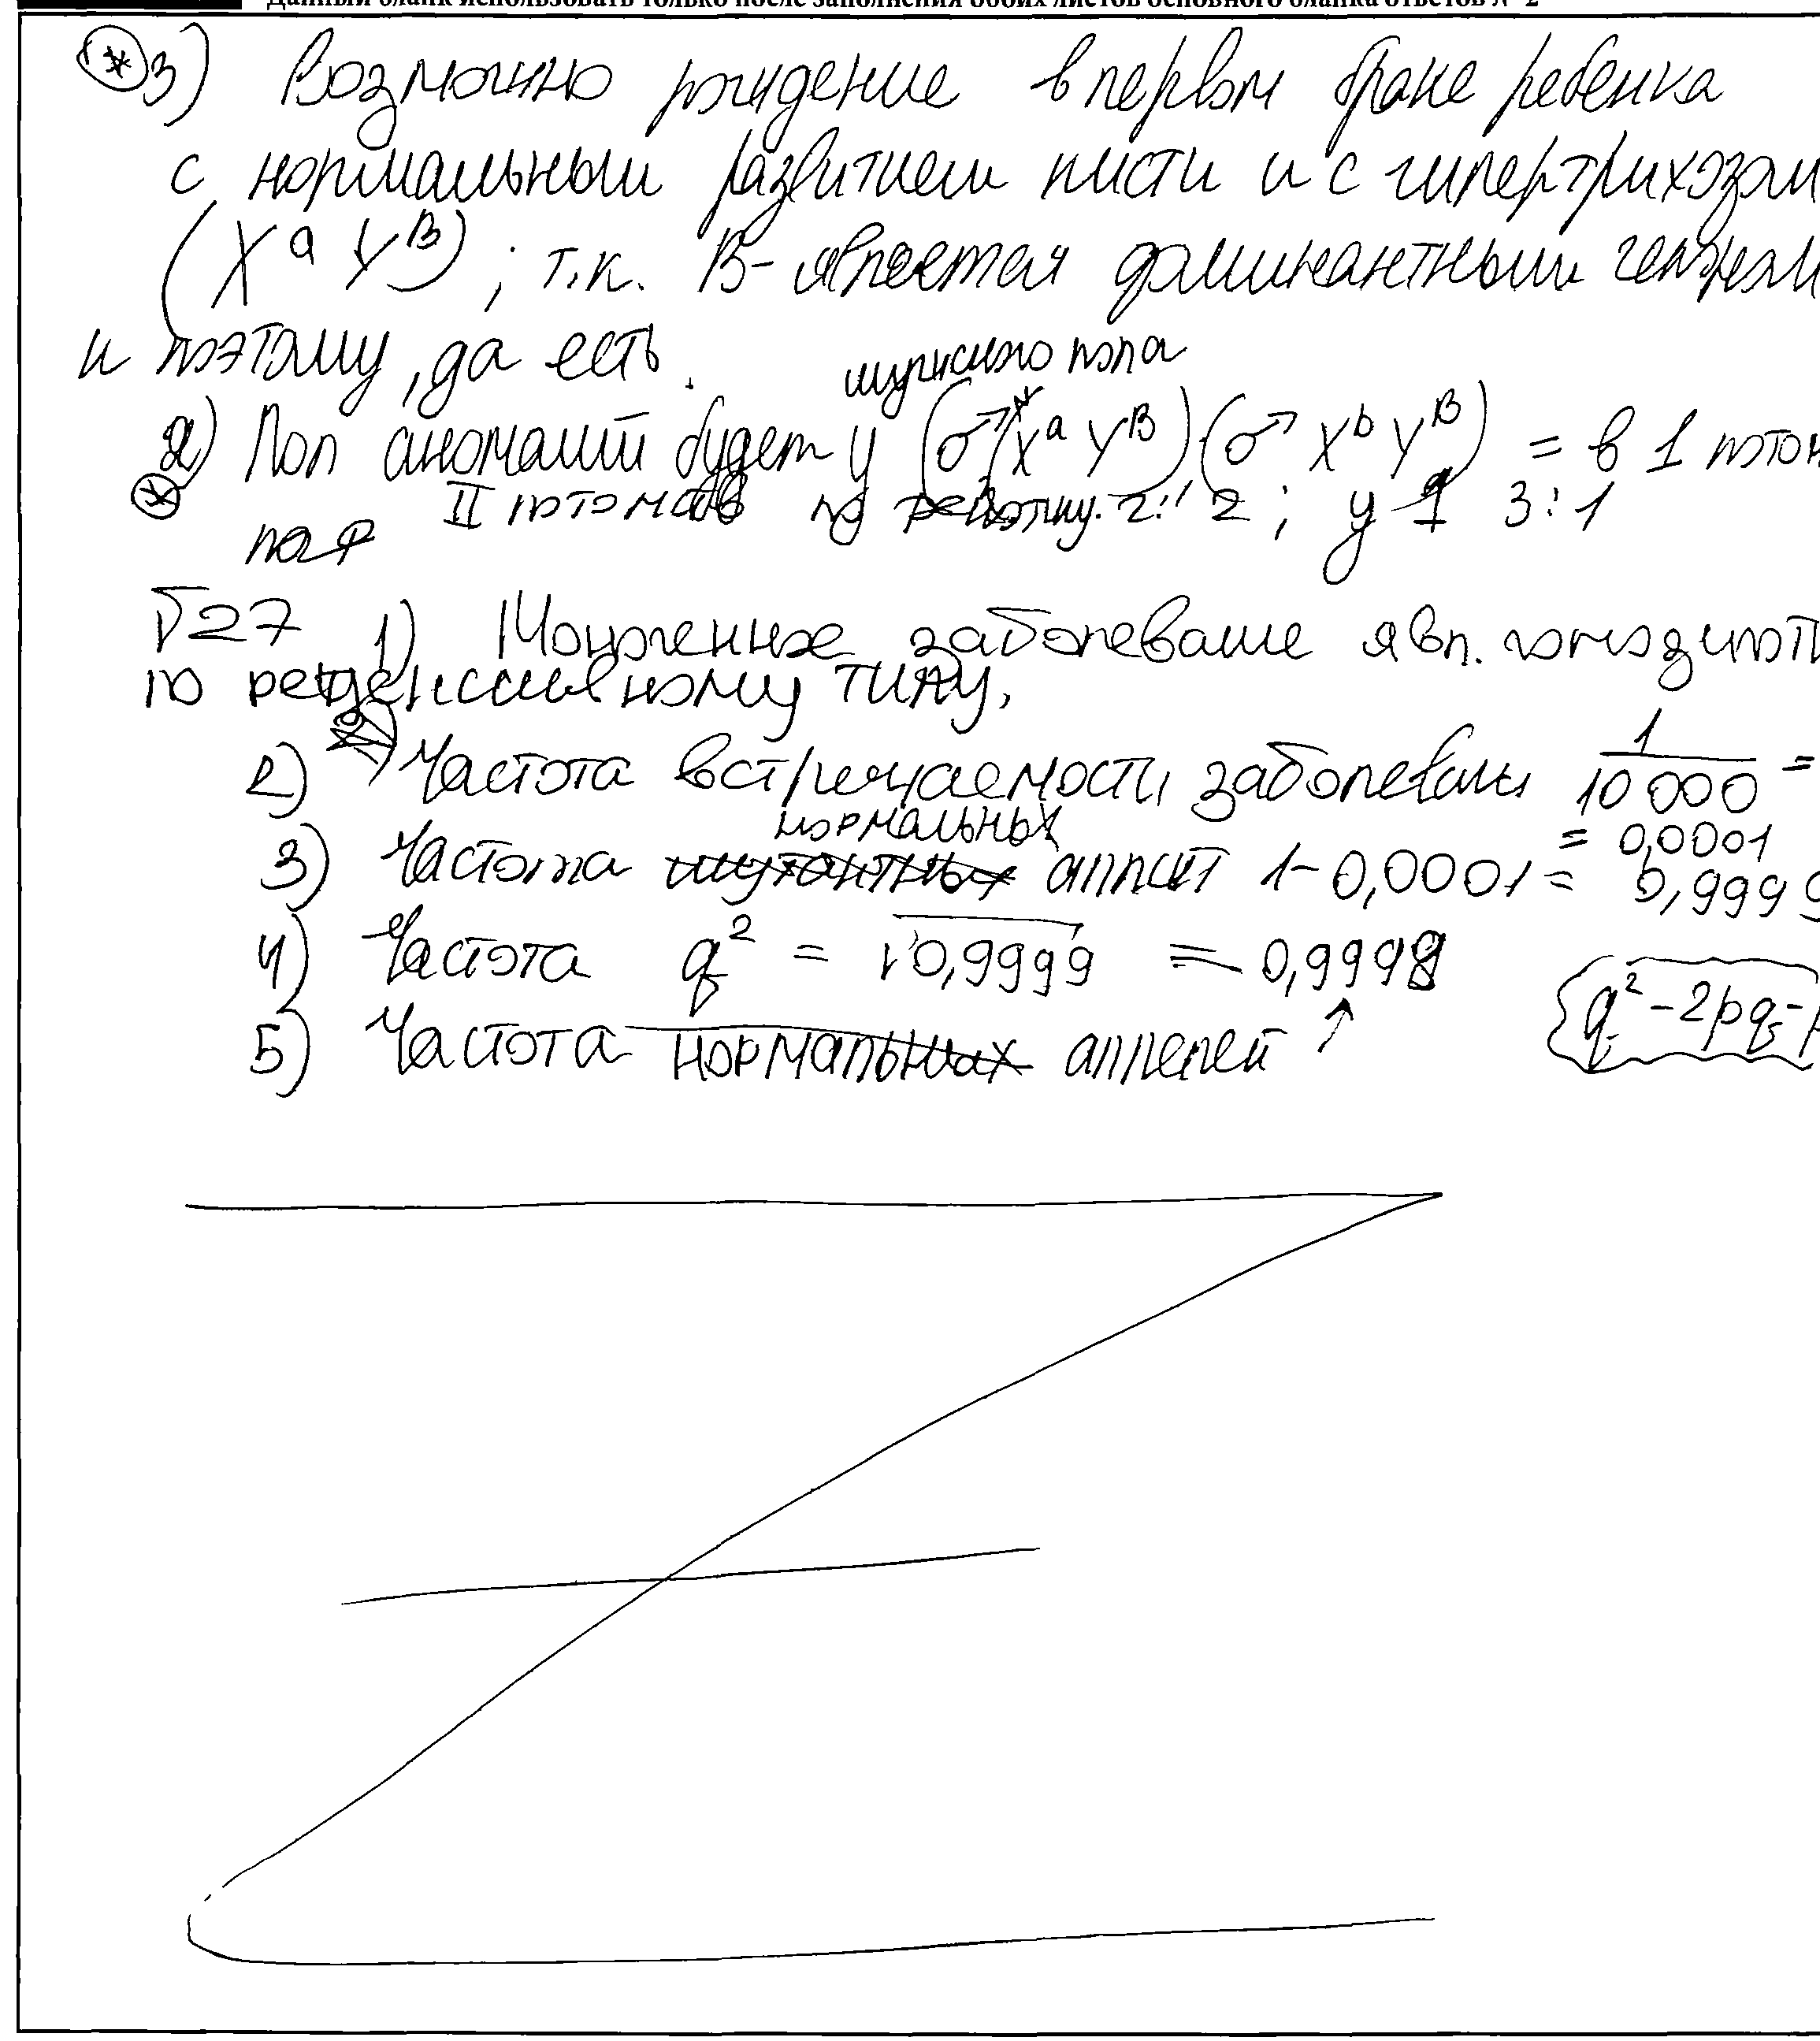 Данный бланк использовать только после заполнения обоих листов основного бланка ответов № 2
(*) 3) Возможно рождение в первом браке ребенка
с нормальным развитием кисти и с гипертрихозом
(Xᵃ Yᴮ) ; т.к. B - является доминантным
и поэтому, да есть.
мужского пола
2) Пол аномалий будет у (♂ Xᵃ Yᴮ) (♂ Xᵇ Yᴮ) = в 1
(*) II по 2:2 ; у 1 3:1
√27 1) заболевание явл.
по рецессивному типу,
2) Частота встречаемости заболевани 1/10 000 =
= 0,0001
нормальных
3) Частота мутантных аллей 1 - 0,0001 = 0,9999
4) Частота q² = √0,9999 = 0,9998
{q² - 2pq -
5) Частота нормальных аллелей ↑